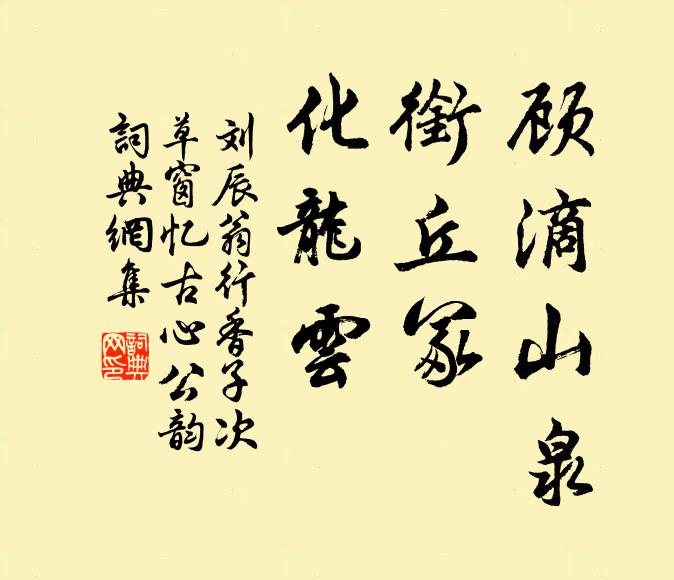 顾滴山泉
衔丘冢
化龍雲
刘辰翁行香子次
草窗忆古心公韵
詞典網集
詞典網印